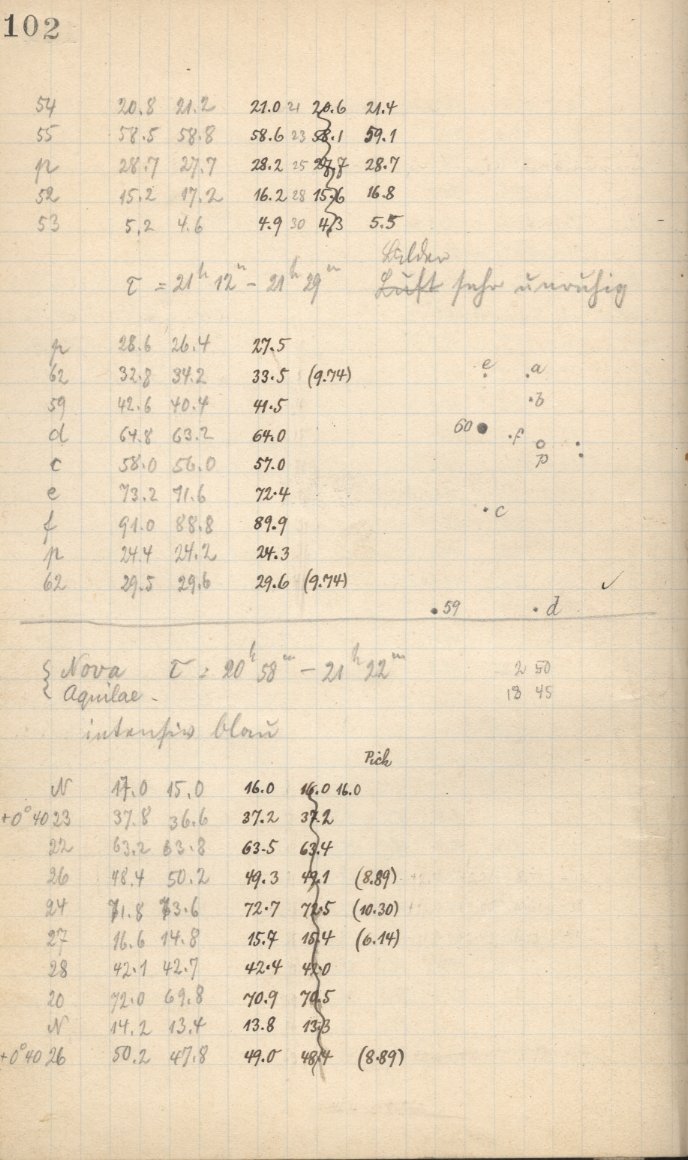 102
54 20.8 21.2 21.0 21 20.6 21.4
55 58.5 58.8 58.6 23 58.1 59.1
p 28.7 27.7 28.2 25 27.7 28.7
52 15.2 17.2 16.2 28 15.6 16.8
53 5.2 4.6 4.9 30 4.3 5.5
Bilder
τ = 21h 12m - 21h 29m Luft sehr unruhig
p 28.6 26.4 27.5
62 32.8 34.2 33.5 (9.74)
59 42.6 40.4 41.5
d 64.8 63.2 64.0
c 58.0 56.0 57.0
e 73.2 71.6 72.4
f 91.0 88.8 89.9
p 24.4 24.2 24.3
62 29.5 29.6 29.6 (9.74)
e a
b
60 f
p
c
59 d ✓
Nova τ = 20h 58m - 21h 22m 2 50
Aquilae - 13 45
intensiv blau
Pick
N 17.0 15.0 16.0 16.0 16.0
+0°40 23 37.8 36.6 37.2 37.2
22 63.2 63.8 63.5 63.4
26 48.4 50.2 49.3 49.1 (8.89)
24 71.8 73.6 72.7 72.5 (10.30)
27 16.6 14.8 15.7 15.4 (6.14)
28 42.1 42.7 42.4 42.0
20 72.0 69.8 70.9 70.5
N 14.2 13.4 13.8 13.3
+0°40 26 50.2 47.8 49.0 48.4 (8.89)